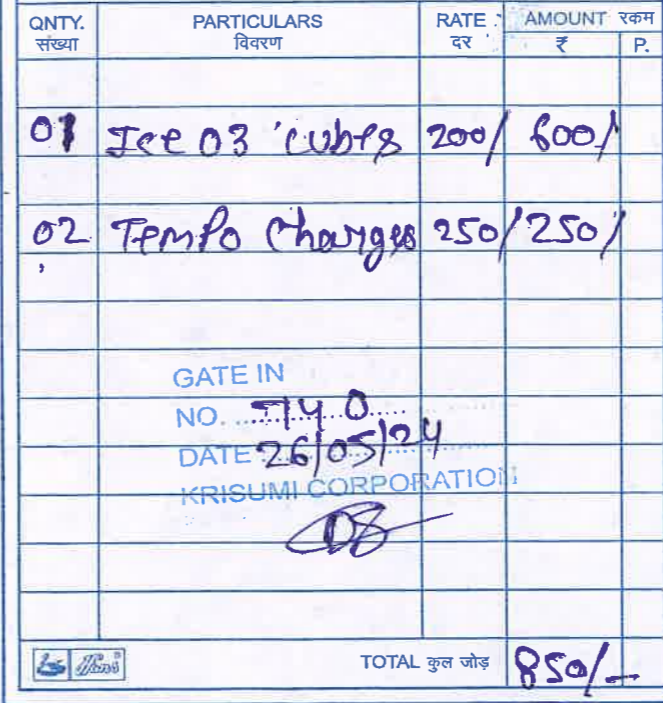 QNTY. PARTICULARS RATE AMOUNT रकम
संख्या विवरण दर ₹ P.
01 Ice 03 cubes 200/ 600/
02 Tempo Charges 250/ 250/
GATE IN
NO. 740
DATE 26/05/24
KRISUMI CORPORATION
TOTAL कुल जोड़ 850/-